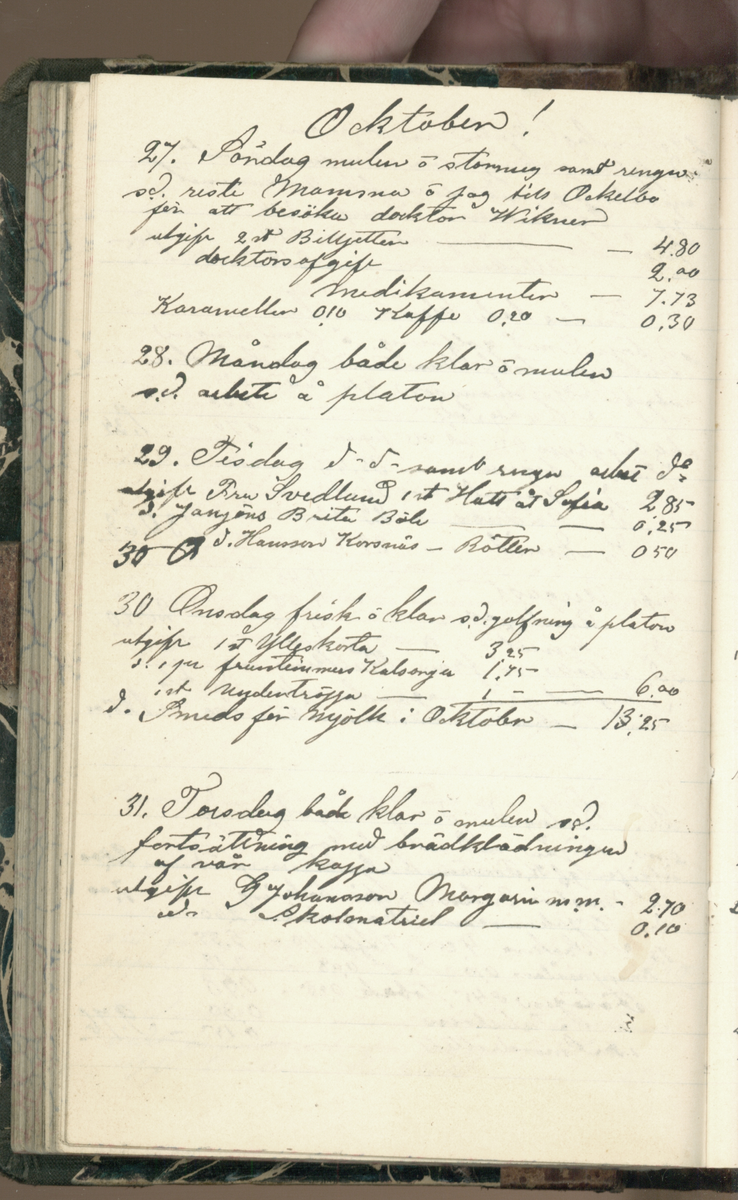 Ocktober!
27. Söndag mulen o stormig samt rengn
s.d. reste Mamma o jag tills Ockelbo
för att besöka docktor Wikner
utgift 2 st Billjetter — — 4.80
docktorsafgift 2.00
Medikamenter — 7.73
Karameller 0,10 Kaffe 0,20 — 0,30
28. Måndag både klar o mulen
s.d. arbete å platon
29. Tisdag d- d- samt rengn arbet do
utgift Fru Svedlund 1 st Hatt åt Sofia 2.85
d. Brita Böle — — 0,25
30 O d. Hansson Korsnäs — Rötter — 0 50
30 Onsdag frisk o klar s.d. golfning å platon
utgift 1 st Ylleskorta — 3,25
d. 1 par fruntimmers Kalsonger 1,75
1 st undertröjja — 1 - — 6.00
d. Smeds för mjölk i Ocktober — 13,25
31. Torsdag både klar o mulen s.d.
fortsättning med brädklädningen
af vår
utgift G Johansson Margarin m.m. - 2.70
d- Skolmatriel — 0.10